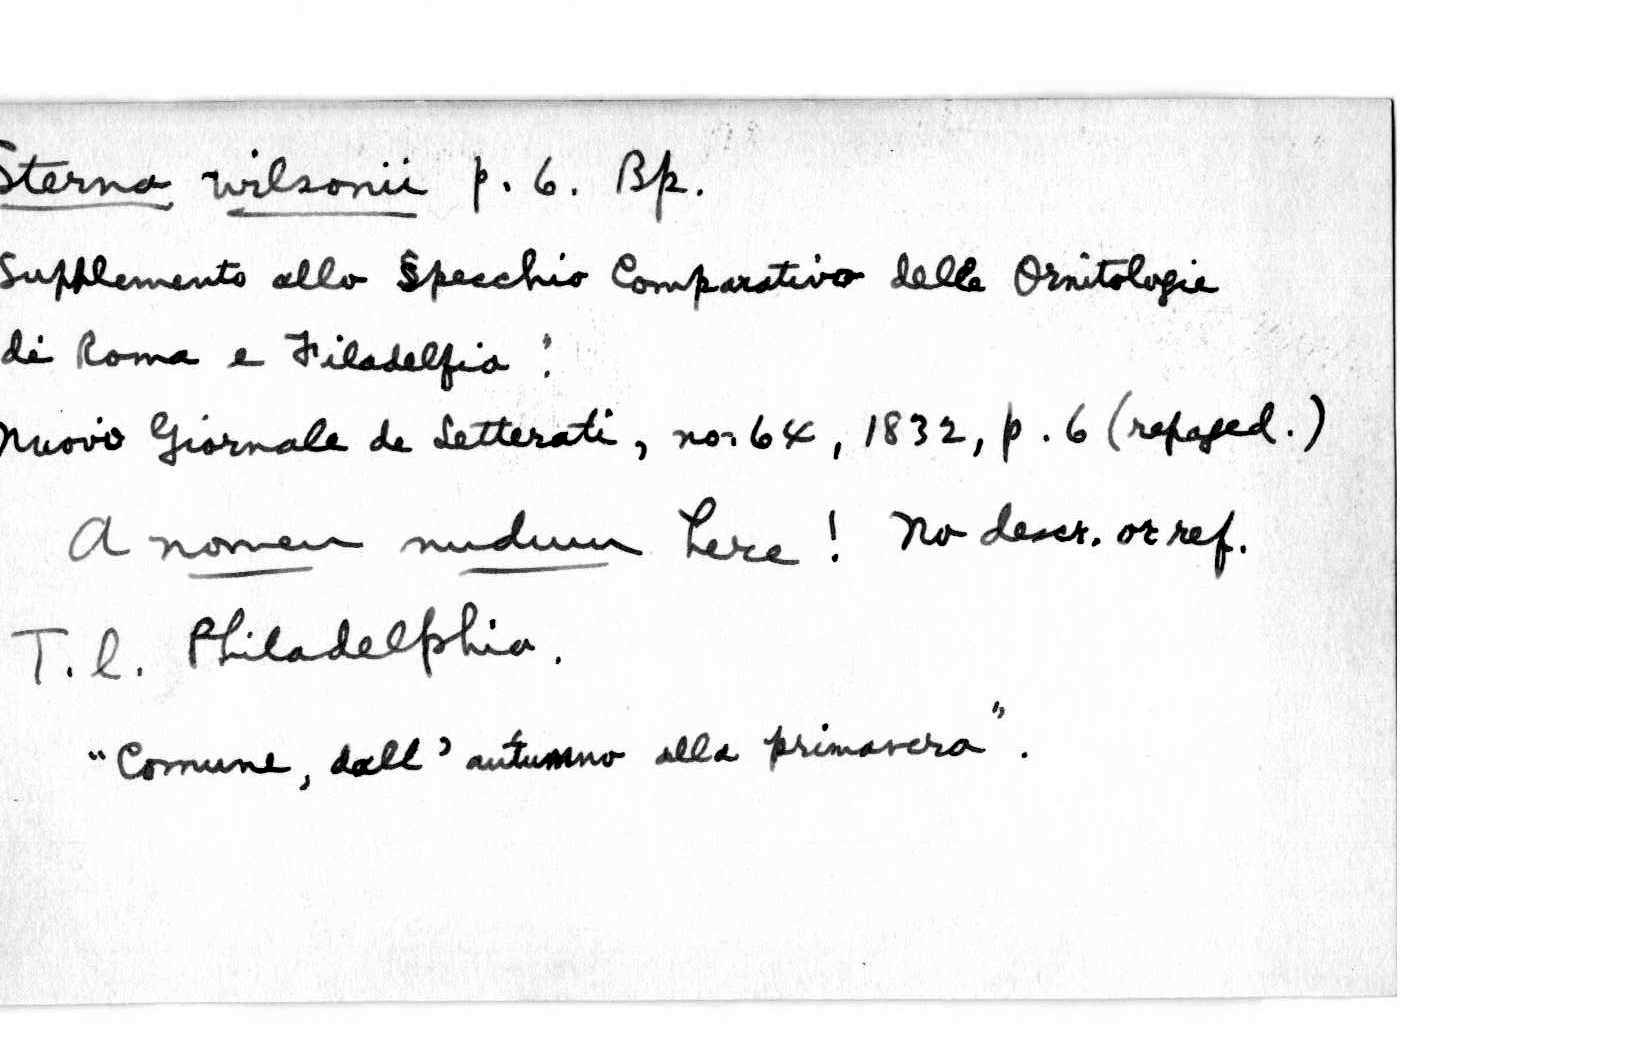 Sterna wilsonii p. 6. Bp.
Supplemento allo Specchio Comparativo delle Ornitologie
di Roma e Filadelfia".
Nuovo Giornale de Letterati, no. 64, 1832, p. 6 (repaged.)
A nomen nudum here! No descr. or ref.
T.l. Philadelphia.
"Comune, dall' autumno alla primavera".